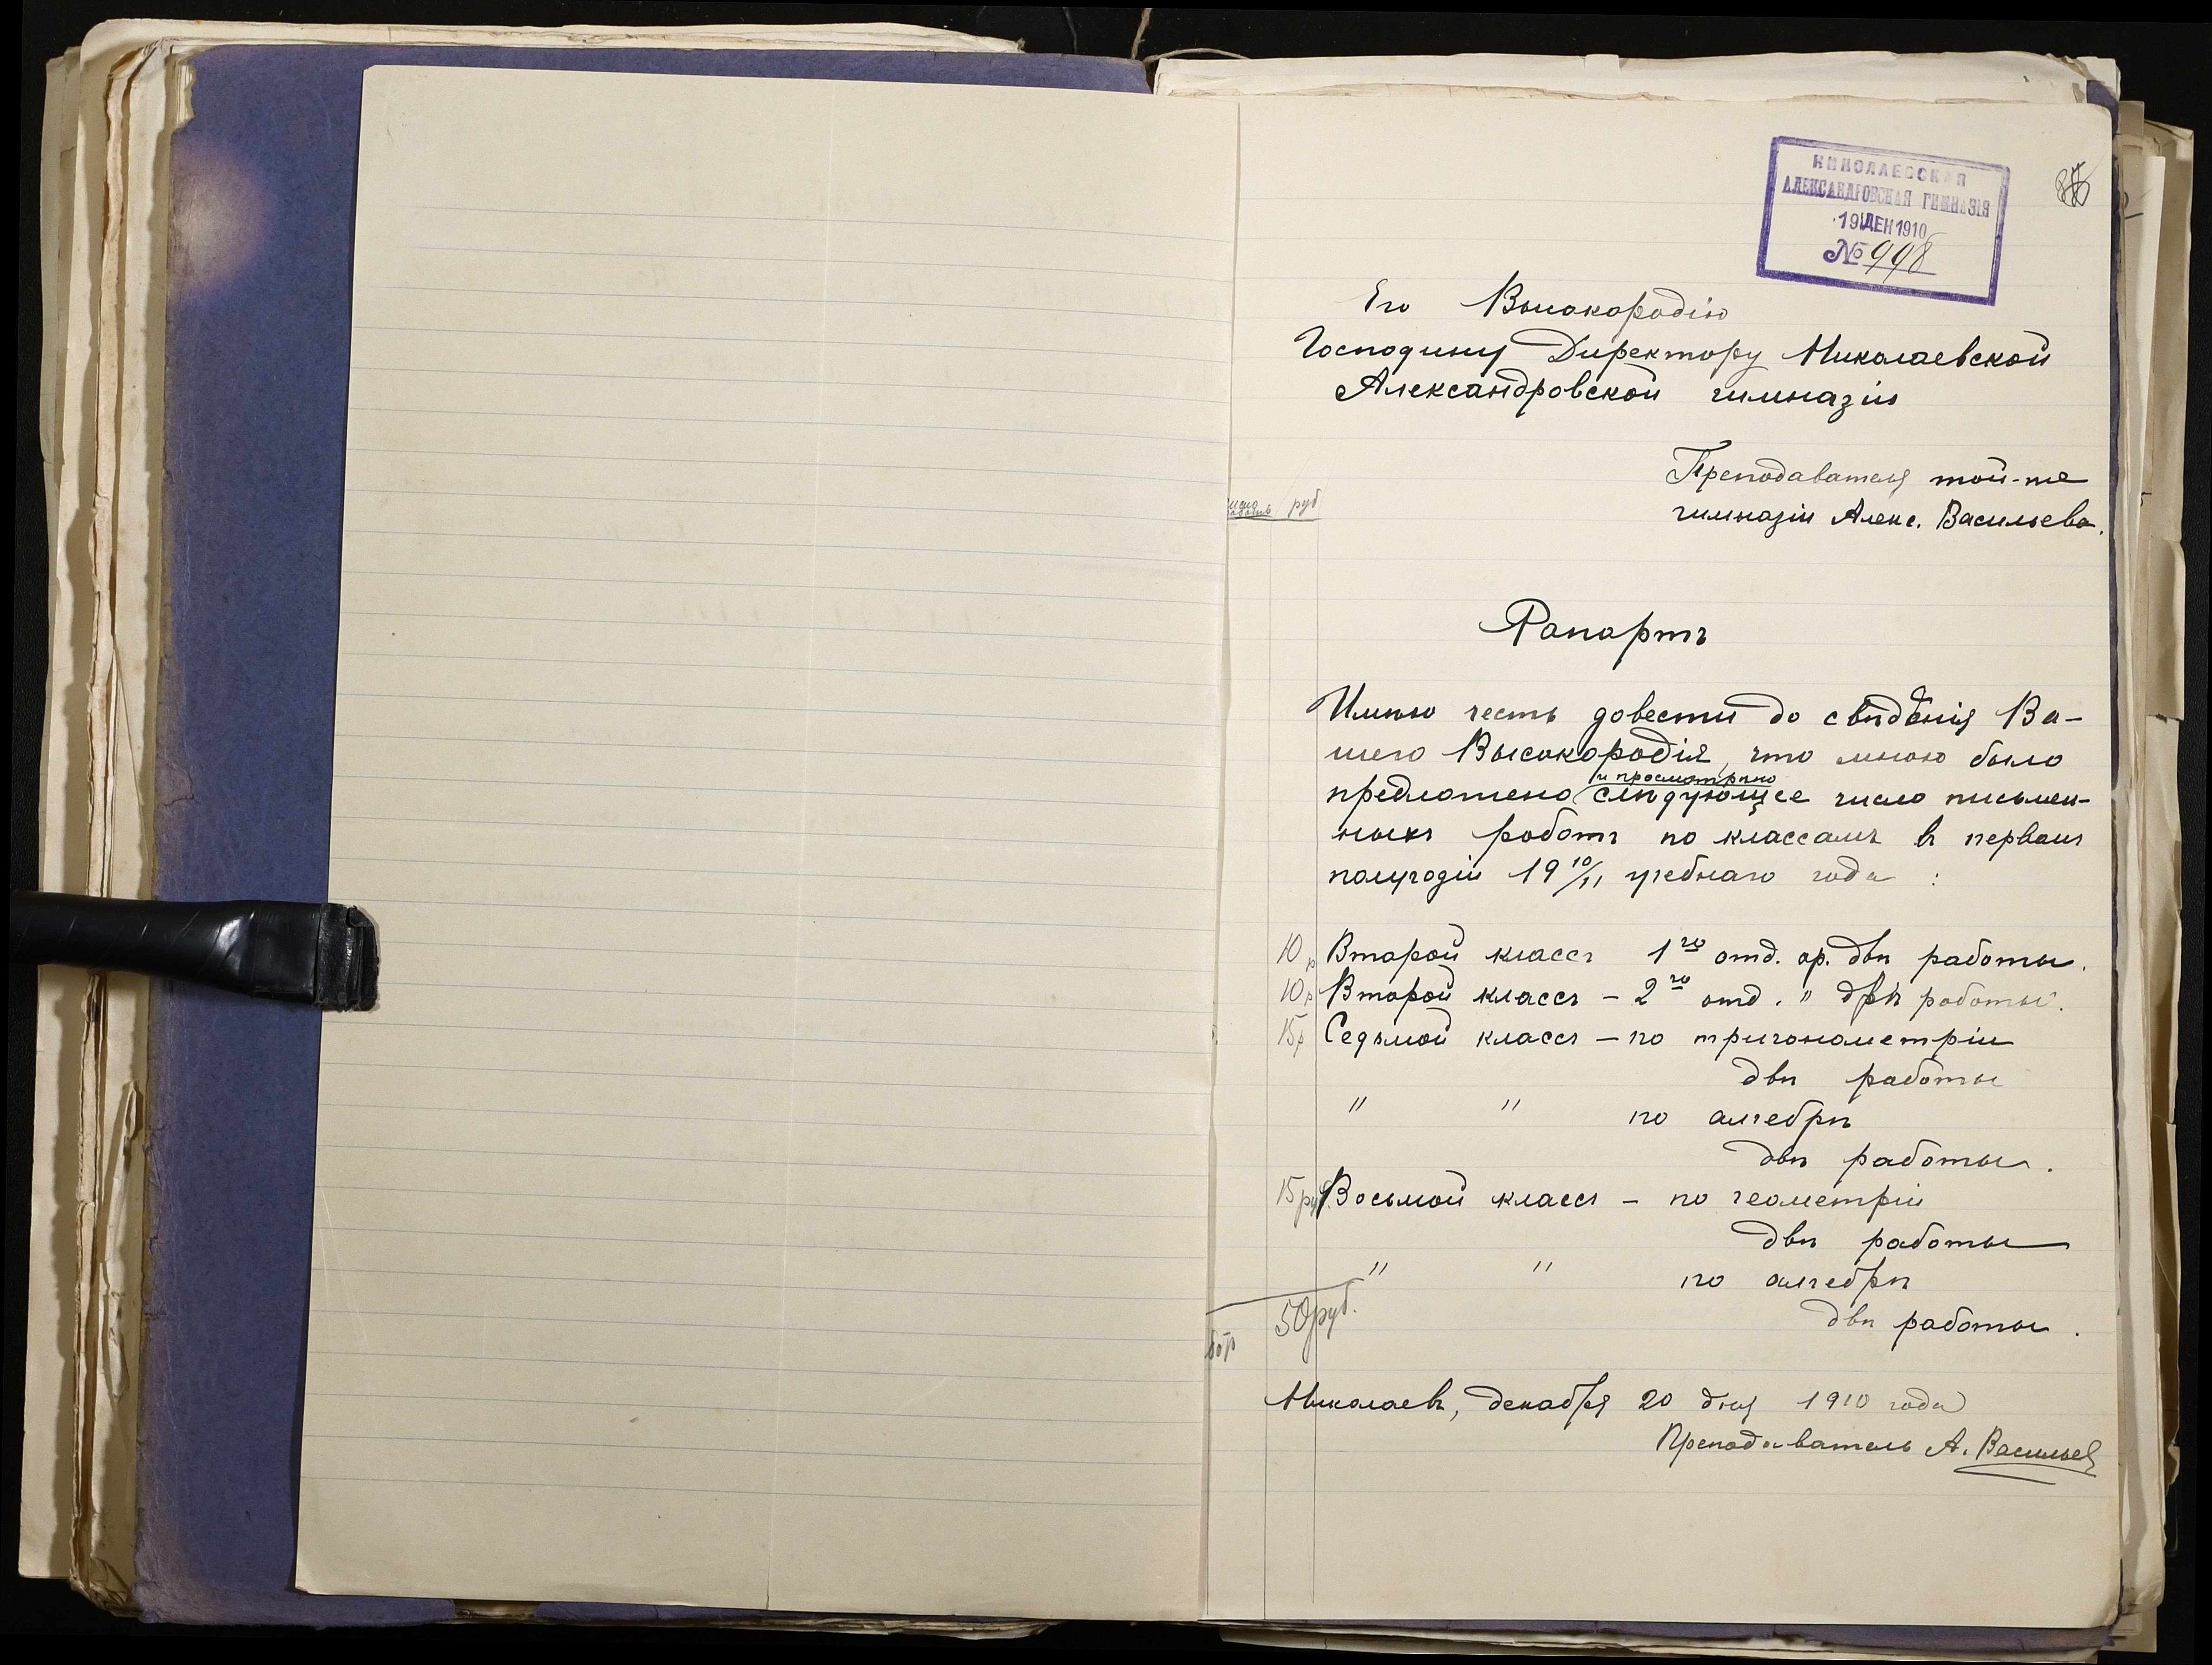 НИКОЛАЕВСКАЯ
АЛЕКСАНДРОВСКАЯ ГИМНАЗІЯ
19 ДЕК 1910
№ 998
Его Высокородію
Господину Директору Николаевской
Александровской гимназіи
Преподавателя той-же
гимназіи Алекс. Васильева.
число работъ руб
Рапортъ
Имѣю честь довести до свѣдѣнія Ва-
шего Высокородія, что мною было
и просмотрено
предложено слѣдующее число письмен-
ныхъ работъ по классамъ въ первомъ
полугодіи 19 10/11 учебнаго года :
10 р Второй классъ 1го отд. ар. двѣ работы.
10 р Второй классъ – 2го отд. " двѣ работы.
15 р Седьмой классъ – по тригонометріи
двѣ работы
" " по алгебрѣ
двѣ работы.
15 руб Восьмой классъ – по геометріи
двѣ работы
" " по алгебрѣ
50 руб.
двѣ работы.
Николаевъ, декабря 20 дня 1910 года
Преподаватель А. Васильев